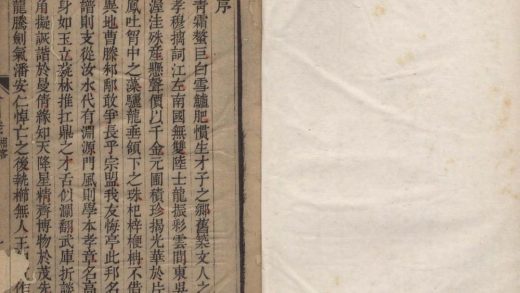 序
青霜螯巨白雪鱸肥慣生才子之鄉舊築文人之
孝穆摛詞江左南國無雙陸士龍振彩雲間東吳
渥洼殊産懸聲價以千金元圃積珍揭光華於片
風吐胷中之藻驪龍垂頷下之珠杞梓楩柟不借
異地曹滕邾敢爭長乎宗盟我友悔亭此邦名
譜則支從汝水代有淵源門風則學本孝章名高
身如玉立瓊林推扛鼎之才舌似瀾翻武庫折談
擬詼諧於曼倩緣知天降星精齊博物於茂先
龍騰劍氣潘安仁悼亡之後執櫛無人王作